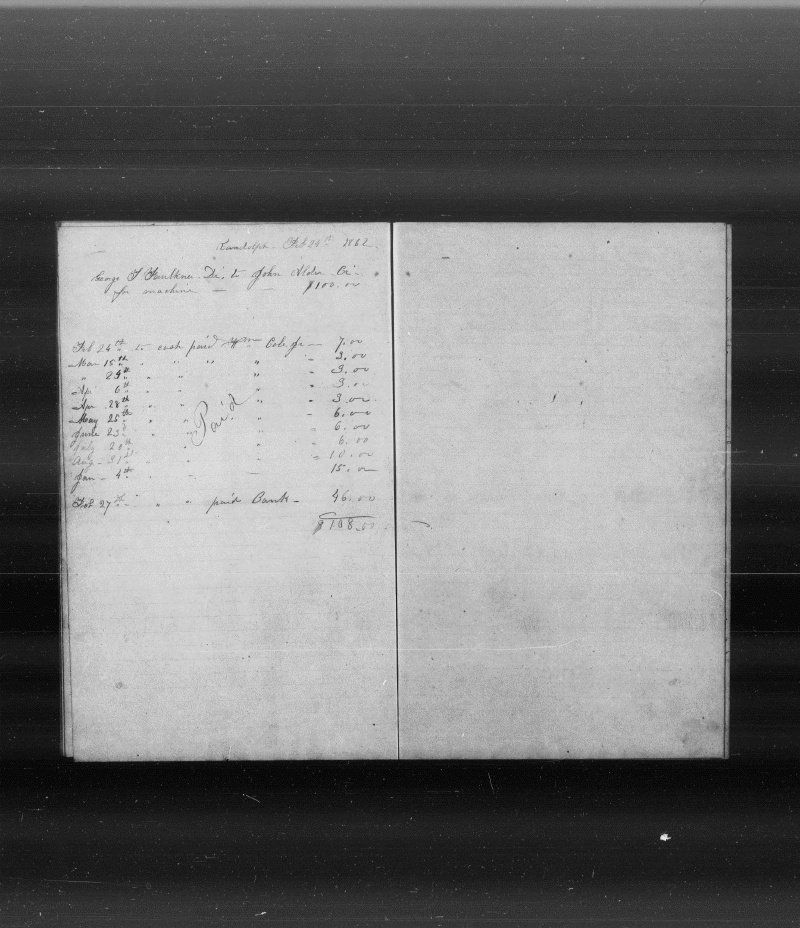 Randolph. Feb 24th 1862.
George T Faulkner Dr. to John Alden Cr.
for machine — — $100.00
Feb 24th to cash paid Wm Cole Jr — 7.00
Mar 15th " " " " " 3.00
" 29th " " " " 3.00
Ap. 6th " " " " 3.00
Apr 28th " " " " 3.00
May 25th " " " " 6.00
June 23d " " " " 6.00
July 20th " " " " 6.00
Aug. 31st " " " " 10.00
Jan. 4th " — 15.00
Paid
Feb 27th " " paid Bank — 46.00
$108.00